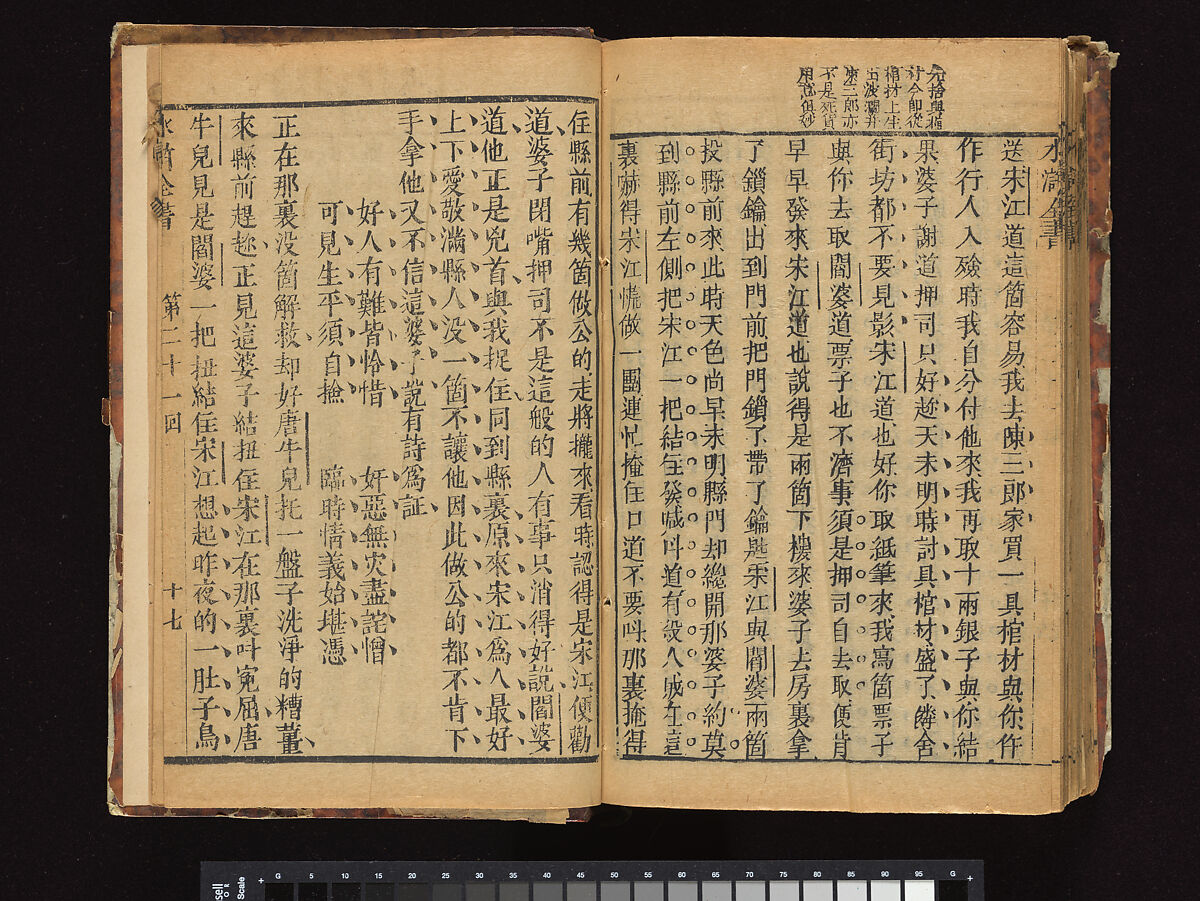 水滸全書
送宋江道這箇容易我去陳三郎家買一具棺材與你仵
作行人入殮時我自分付他來我再取十兩銀子與你結
果婆子謝道押司只好趂天未明時討具棺材盛了隣舍
街坊都不要見影宋江道也好你取紙筆來我寫箇票子
與你去取閻婆道票子也不濟事須是押司自去取便肯
早早發來宋江道也說得是兩箇下樓來婆子去房裏拿
了鎖鑰出到門前把門鎖了帶了鑰匙宋江與閻婆兩箇
投縣前來此時天色尚早未明縣門却纔開那婆子約莫
到縣前左側把宋江一把結住發喊呌道有殺人賊在這
裏嚇得宋江慌做一團連忙掩住口道不要呌那裏掩得
住縣前有幾箇做公的走將攏來看時認得是宋江便勸
道婆子閉嘴押司不是這般的人有事只消得好說閻婆
道他正是兇首與我捉住同到縣裏原來宋江爲人最好
上下愛敬滿縣人没一箇不讓他因此做公的都不肯下
手拿他又不信這婆子說有詩爲証
好人有難皆怜惜 奸惡無灾盡詫憎
可見生平須自撿 臨時情義始堪憑
正在那裏没箇解救却好唐牛兒托一盤子洗淨的糟薑
來縣前趕趂正見這婆子結扭住宋江在那裏呌寃屈唐
牛兒見是閻婆一把扭結住宋江想起昨夜的一肚子鳥
水滸全書 第二十一回 十七